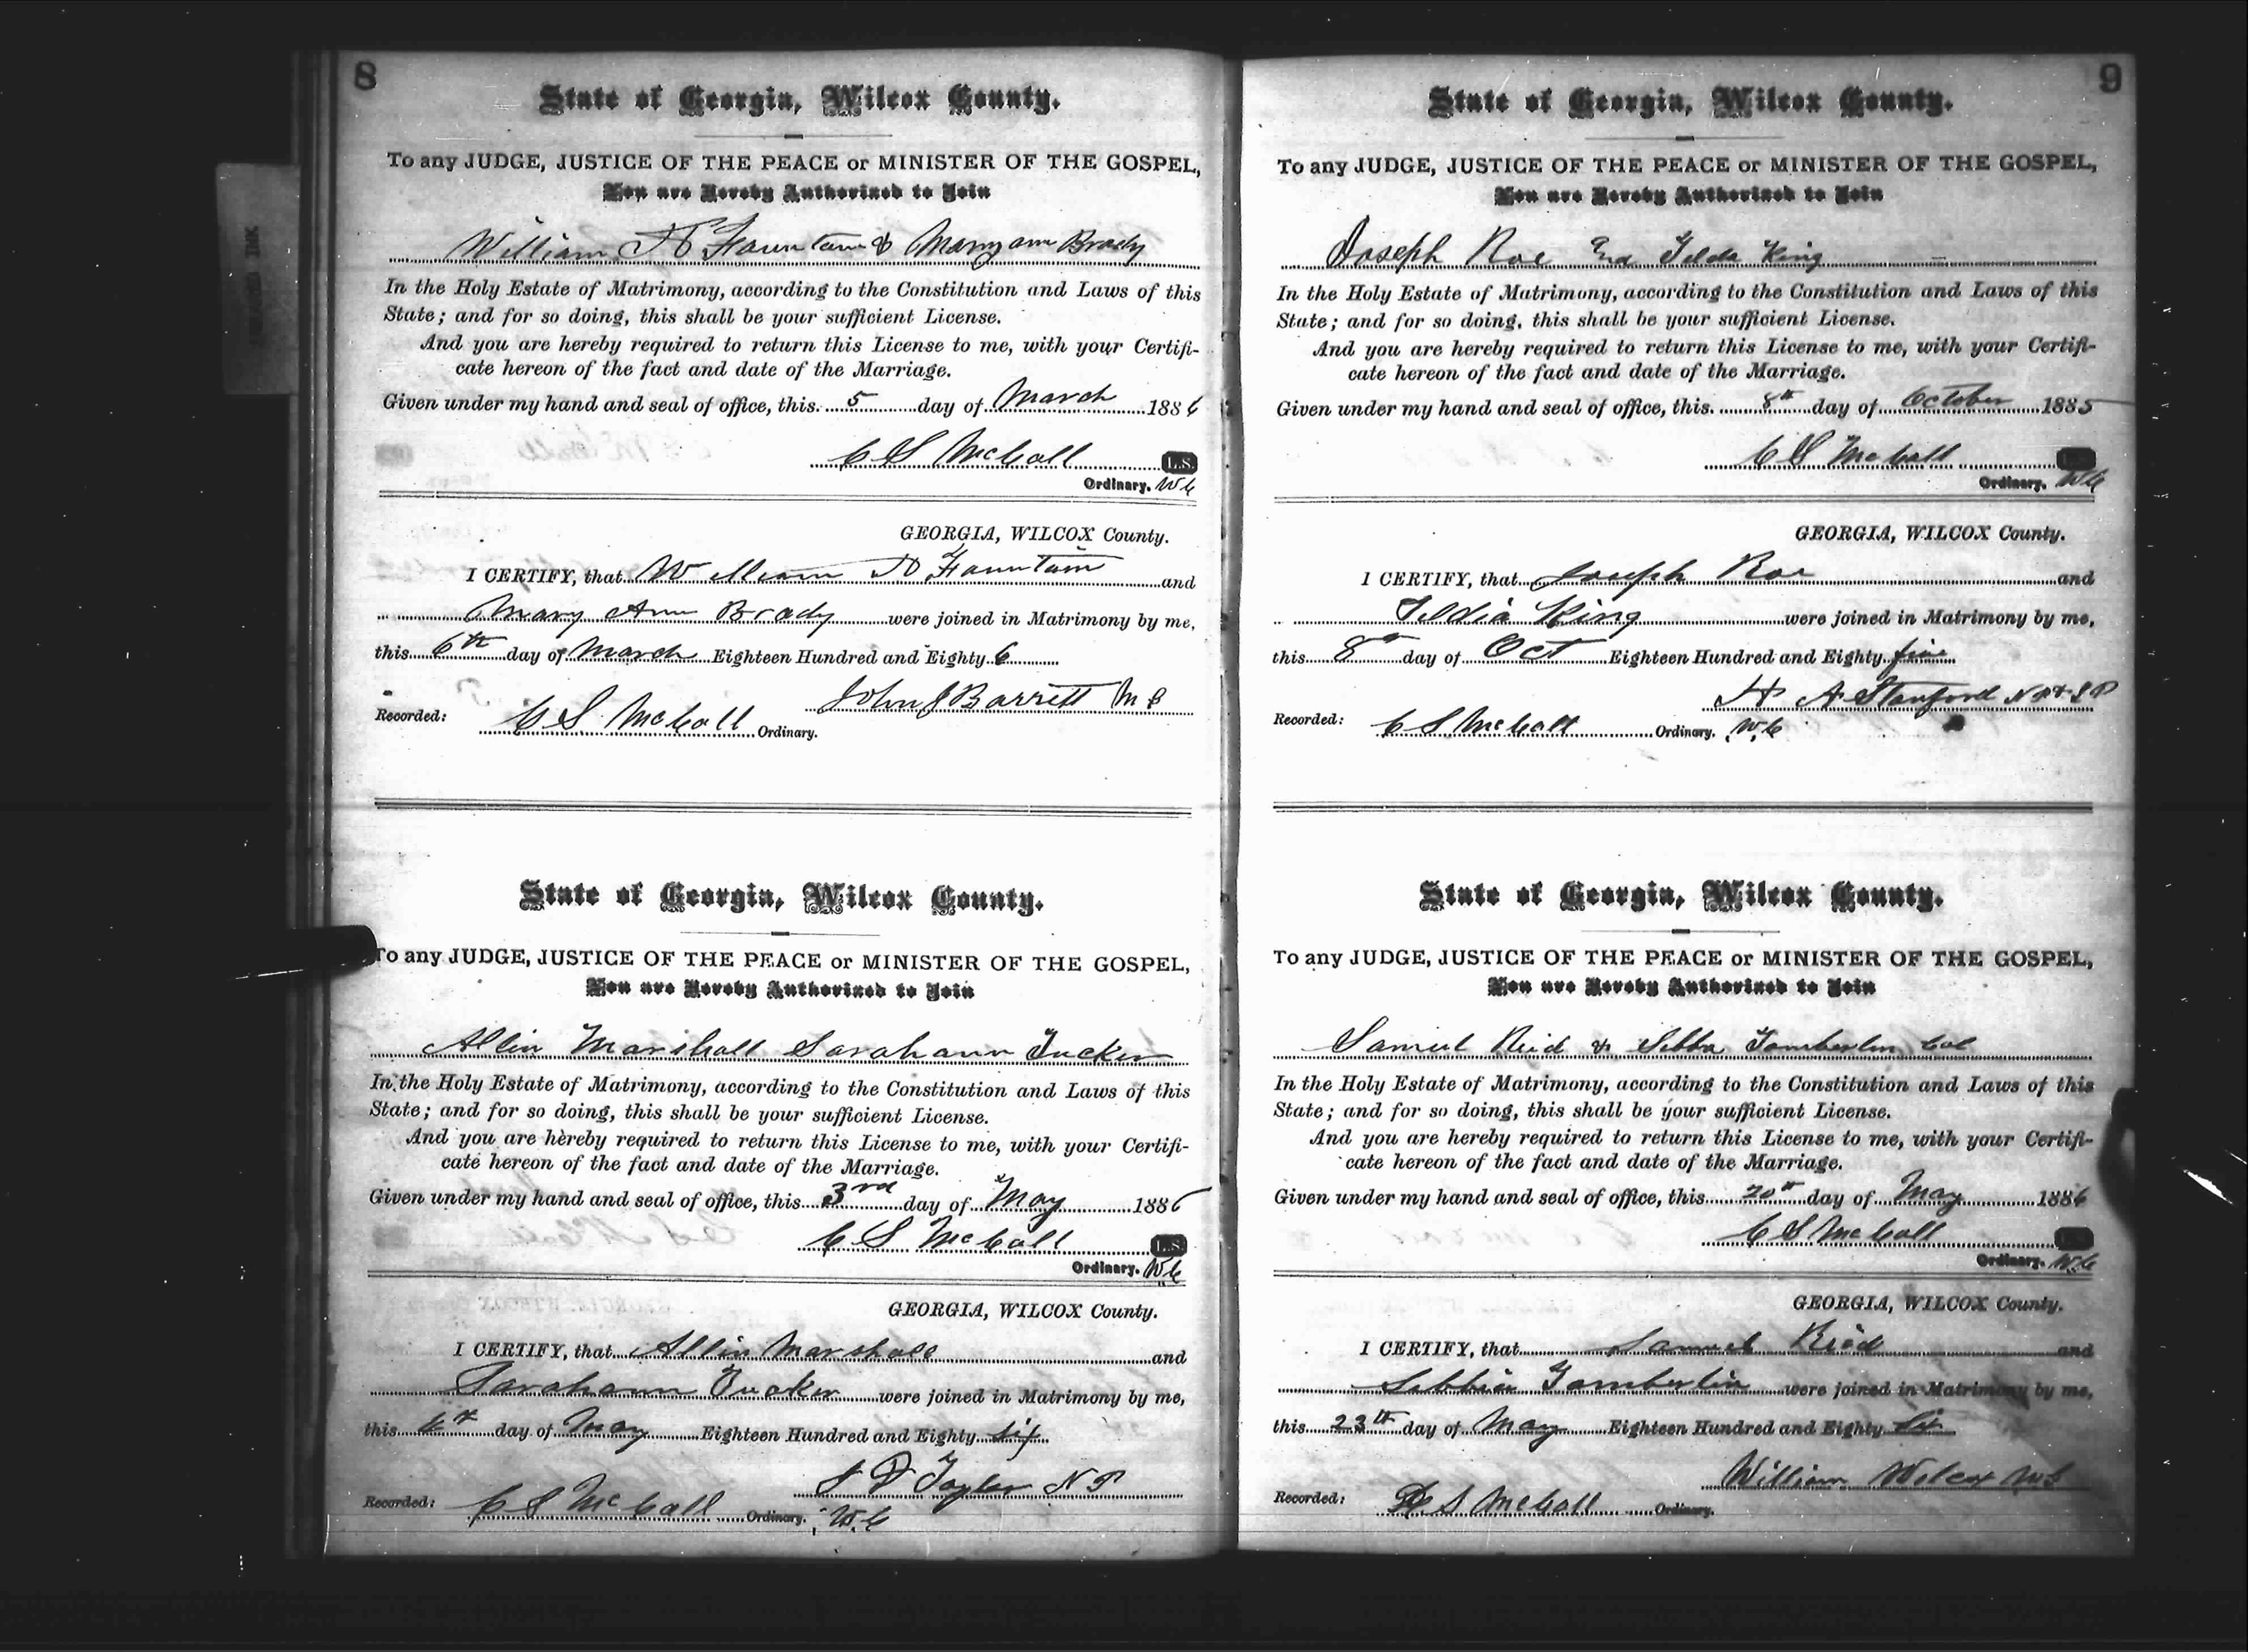 8
State of Georgia, Wilcox County.
To any JUDGE, JUSTICE OF THE PEACE or MINISTER OF THE GOSPEL,
You are Hereby Authorized to Join
William Fountain & Maryann Brady
In the Holy Estate of Matrimony, according to the Constitution and Laws of this
State; and for so doing, this shall be your sufficient License.
And you are hereby required to return this License to me, with your Certifi-
cate hereon of the fact and date of the Marriage.
Given under my hand and seal of office, this 5 day of March 1886
C S McCall L.S.
Ordinary. W C
GEORGIA, WILCOX County.
I CERTIFY, that William Fountain and
Mary Ann Brady were joined in Matrimony by me,
this 6th day of March Eighteen Hundred and Eighty 6
John J Barrett M G
Recorded: C S McCall Ordinary.
State of Georgia, Wilcox County.
To any JUDGE, JUSTICE OF THE PEACE or MINISTER OF THE GOSPEL,
You are Hereby Authorized to Join
Allin Marshall Sarahann Tucker
In the Holy Estate of Matrimony, according to the Constitution and Laws of this
State; and for so doing, this shall be your sufficient License.
And you are hereby required to return this License to me, with your Certifi-
cate hereon of the fact and date of the Marriage.
Given under my hand and seal of office, this 3rd day of May 1886
C S McCall L.S.
Ordinary. W C
GEORGIA, WILCOX County.
I CERTIFY, that Allin Marshall and
Sarahann Tucker were joined in Matrimony by me,
this 6th day of May Eighteen Hundred and Eighty six
Taylor N P
Recorded: C S McCall Ordinary. W. C
9
State of Georgia, Wilcox County.
To any JUDGE, JUSTICE OF THE PEACE or MINISTER OF THE GOSPEL,
You are Hereby Authorized to Join
Joseph Roe End Telda King
In the Holy Estate of Matrimony, according to the Constitution and Laws of this
State; and for so doing, this shall be your sufficient License.
And you are hereby required to return this License to me, with your Certifi-
cate hereon of the fact and date of the Marriage.
Given under my hand and seal of office, this 8th day of October 1885
C S McCall
Ordinary. W C
GEORGIA, WILCOX County.
I CERTIFY, that Joseph Roe and
Teldia King were joined in Matrimony by me,
this 8th day of Oct Eighteen Hundred and Eighty five
H A Stanford N P & J P
Recorded: C S McCall Ordinary. W. C
State of Georgia, Wilcox County.
To any JUDGE, JUSTICE OF THE PEACE or MINISTER OF THE GOSPEL,
You are Hereby Authorized to Join
Samuel Reid & Sebba Tomberlin Col
In the Holy Estate of Matrimony, according to the Constitution and Laws of this
State; and for so doing, this shall be your sufficient License.
And you are hereby required to return this License to me, with your Certifi-
cate hereon of the fact and date of the Marriage.
Given under my hand and seal of office, this 20th day of May 1886
C S McCall
Ordinary. W. C
GEORGIA, WILCOX County.
I CERTIFY, that Samuel Reid and
Sebbia Tomberlin were joined in Matrimony by me,
this 23th day of May Eighteen Hundred and Eighty Six
William Wilcox M G
Recorded: C S McCall Ordinary.